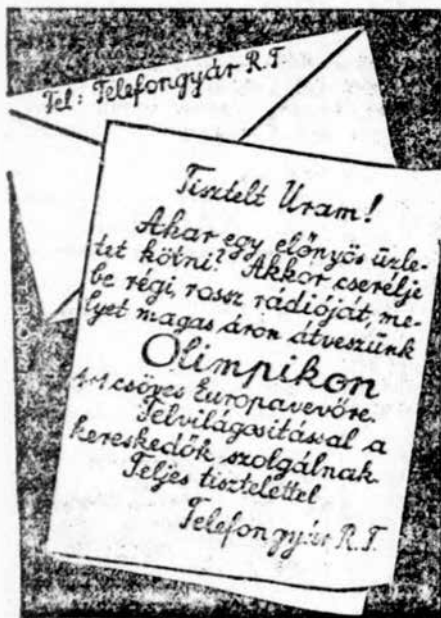 Fel: Telefongyár R.T.
Tisztelt Uram!
Akar egy előnyös üzle-
tet kötni? Akkor cserélje
be régi, rossz rádióját, me-
lyet magas áron átveszünk
Olimpikon
4+1 csöves Európavevőre.
Felvilágosítással a
kereskedők szolgálnak.
Teljes tisztelettel
Telefongyár R.T.